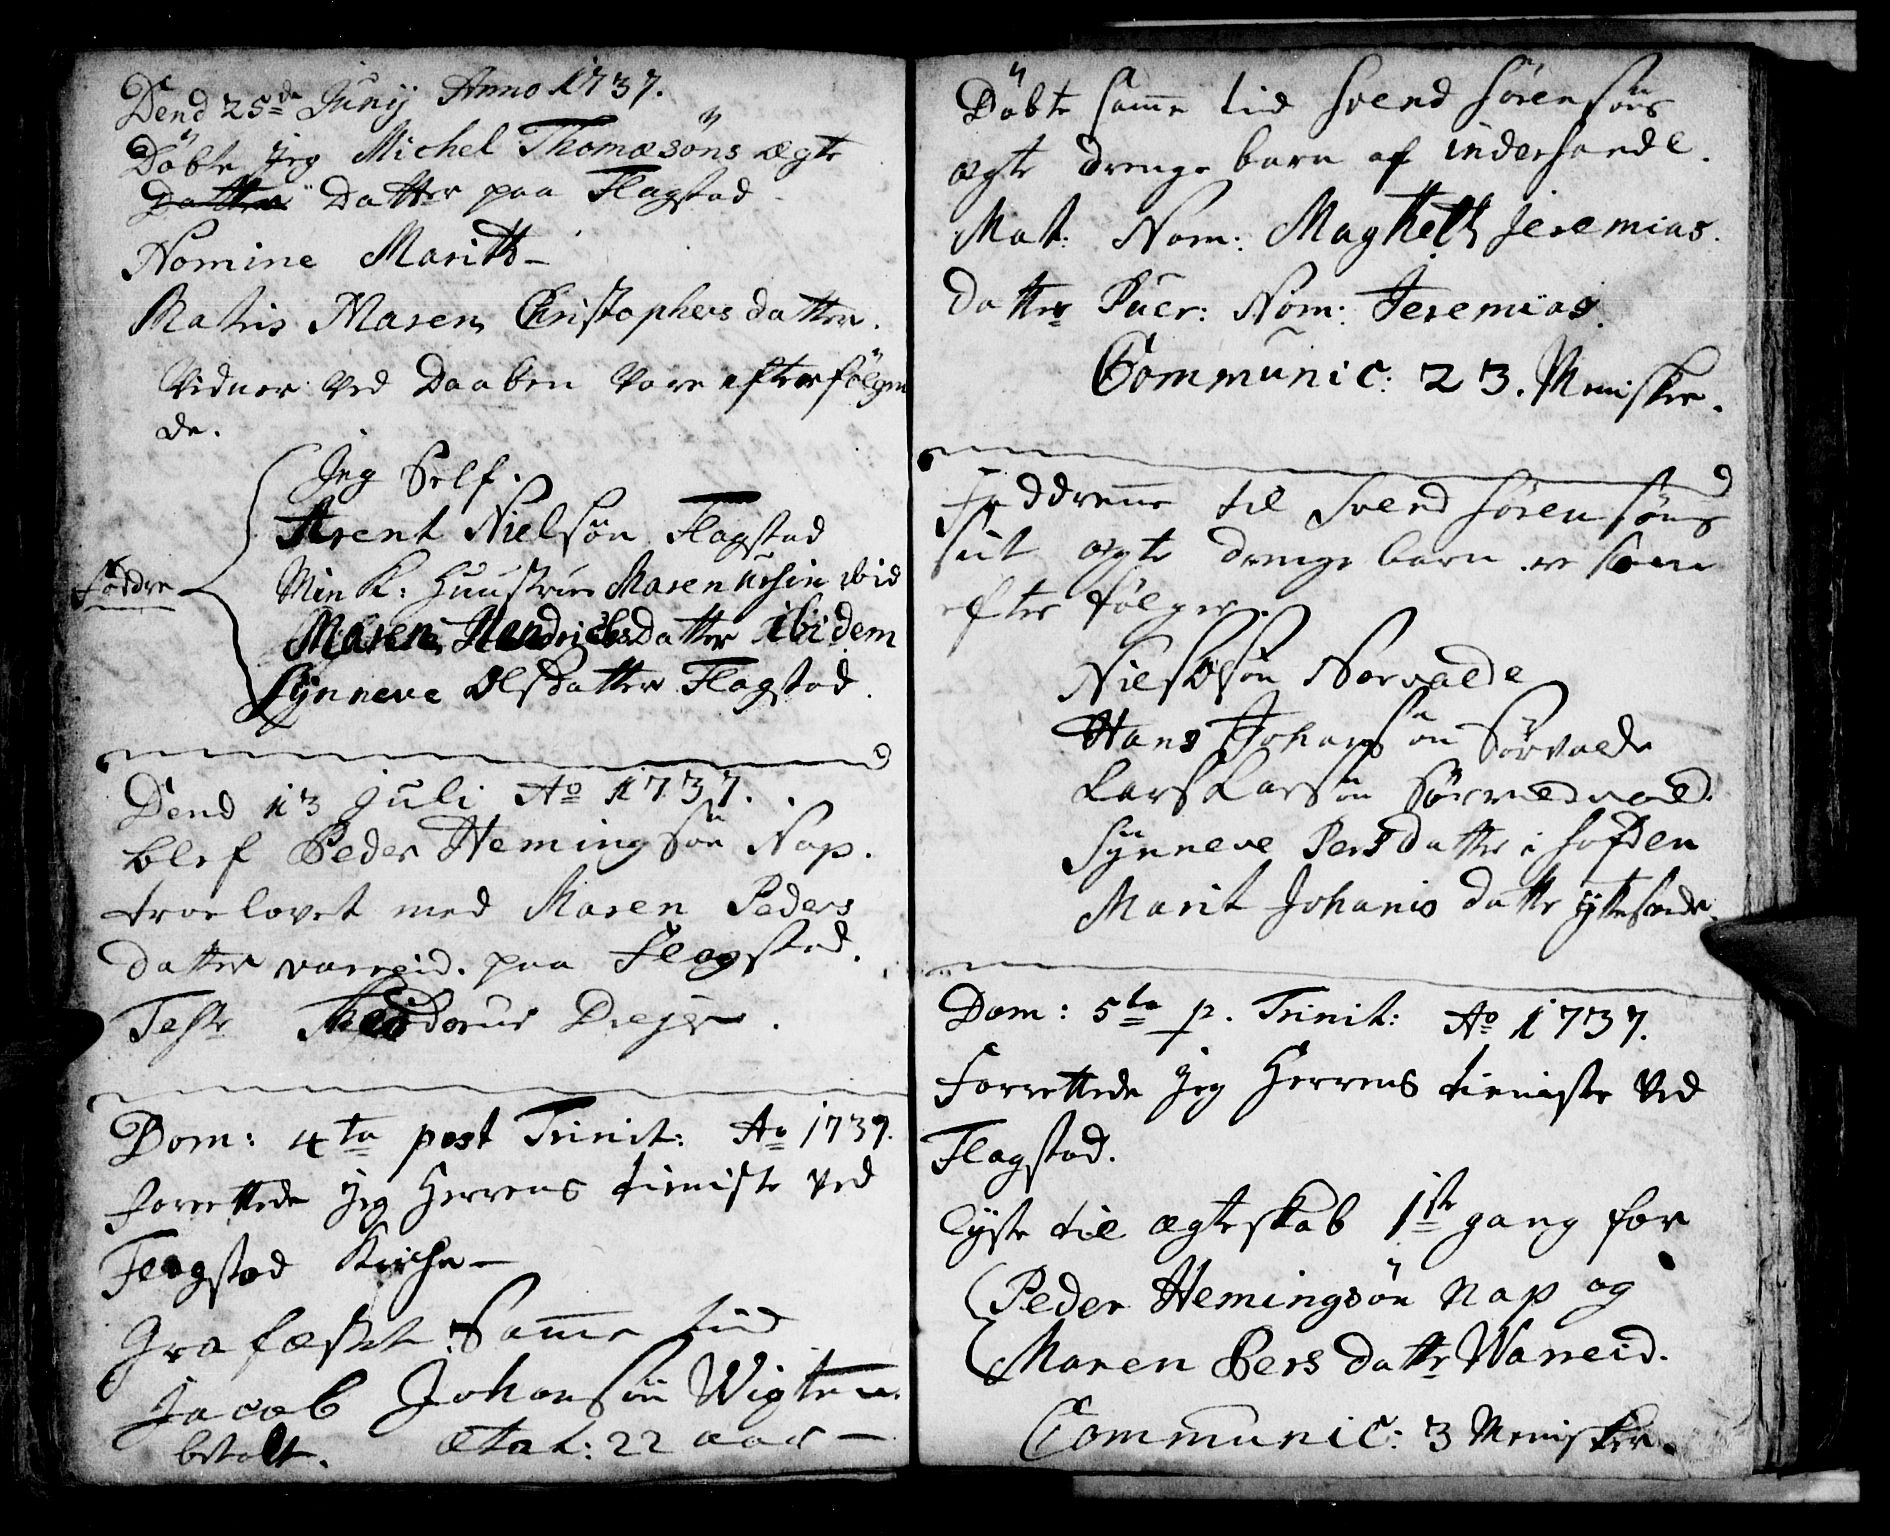 Dend 25de Junij Anno 1737.
Döbte jeg Michel Thomæsöns ægte
Datter Datter paa Flagstad
Nomine Marith –
Matris Maren Christophersdatter.
Vidner ved Daaben vare efterfölgen
de.
Jeg Self.
Arent Nielsön Flagstad
Faddre
Min K: Huustrue Maren ibid
Maren Hendrichsdatter ibidem
Synneve Olsdatter Flagstad.
Dend 13 Juli Ao 1737.
blef Peder Hemingsön Nap.
troelovet med Maren Peders
datter vareid. paa Flagstad.
Teste Theodorus Dreyer.
Dom: 4ta post Trinit: Ao 1737.
forrettede jeg Herrens tieniste ved
Flagstad Kirche –
Gra fæstet Samme tid
Jacob Johansön Wigten.
betalt. ætat: 22 aar –
Döbte samme tid Svend Sörensöns
ægte drenge barn af indersande.
Mat: Nom: Magheth Jeremias
datter Puer: Nom: Jeremias.
Communic: 23. Menisker.
Faddrene til Svend Sörensöns
sit ægte drenge barn er som
efter fölger.
Nielsön Norvalde
Hans Johansön Sörvalde
Lars Larsön
Synneve Persdatter i
Marit Johanis datter
Dom: 5ta p. Trinit: Ao 1737.
Forrettede jeg Herrens tieniste ved
Flagstad.
Lyste til ægteskab 1ste gang for
Peder Hemingsön Nap og
Maren Persdatter Wareid.
Communic: 3 Menisker.